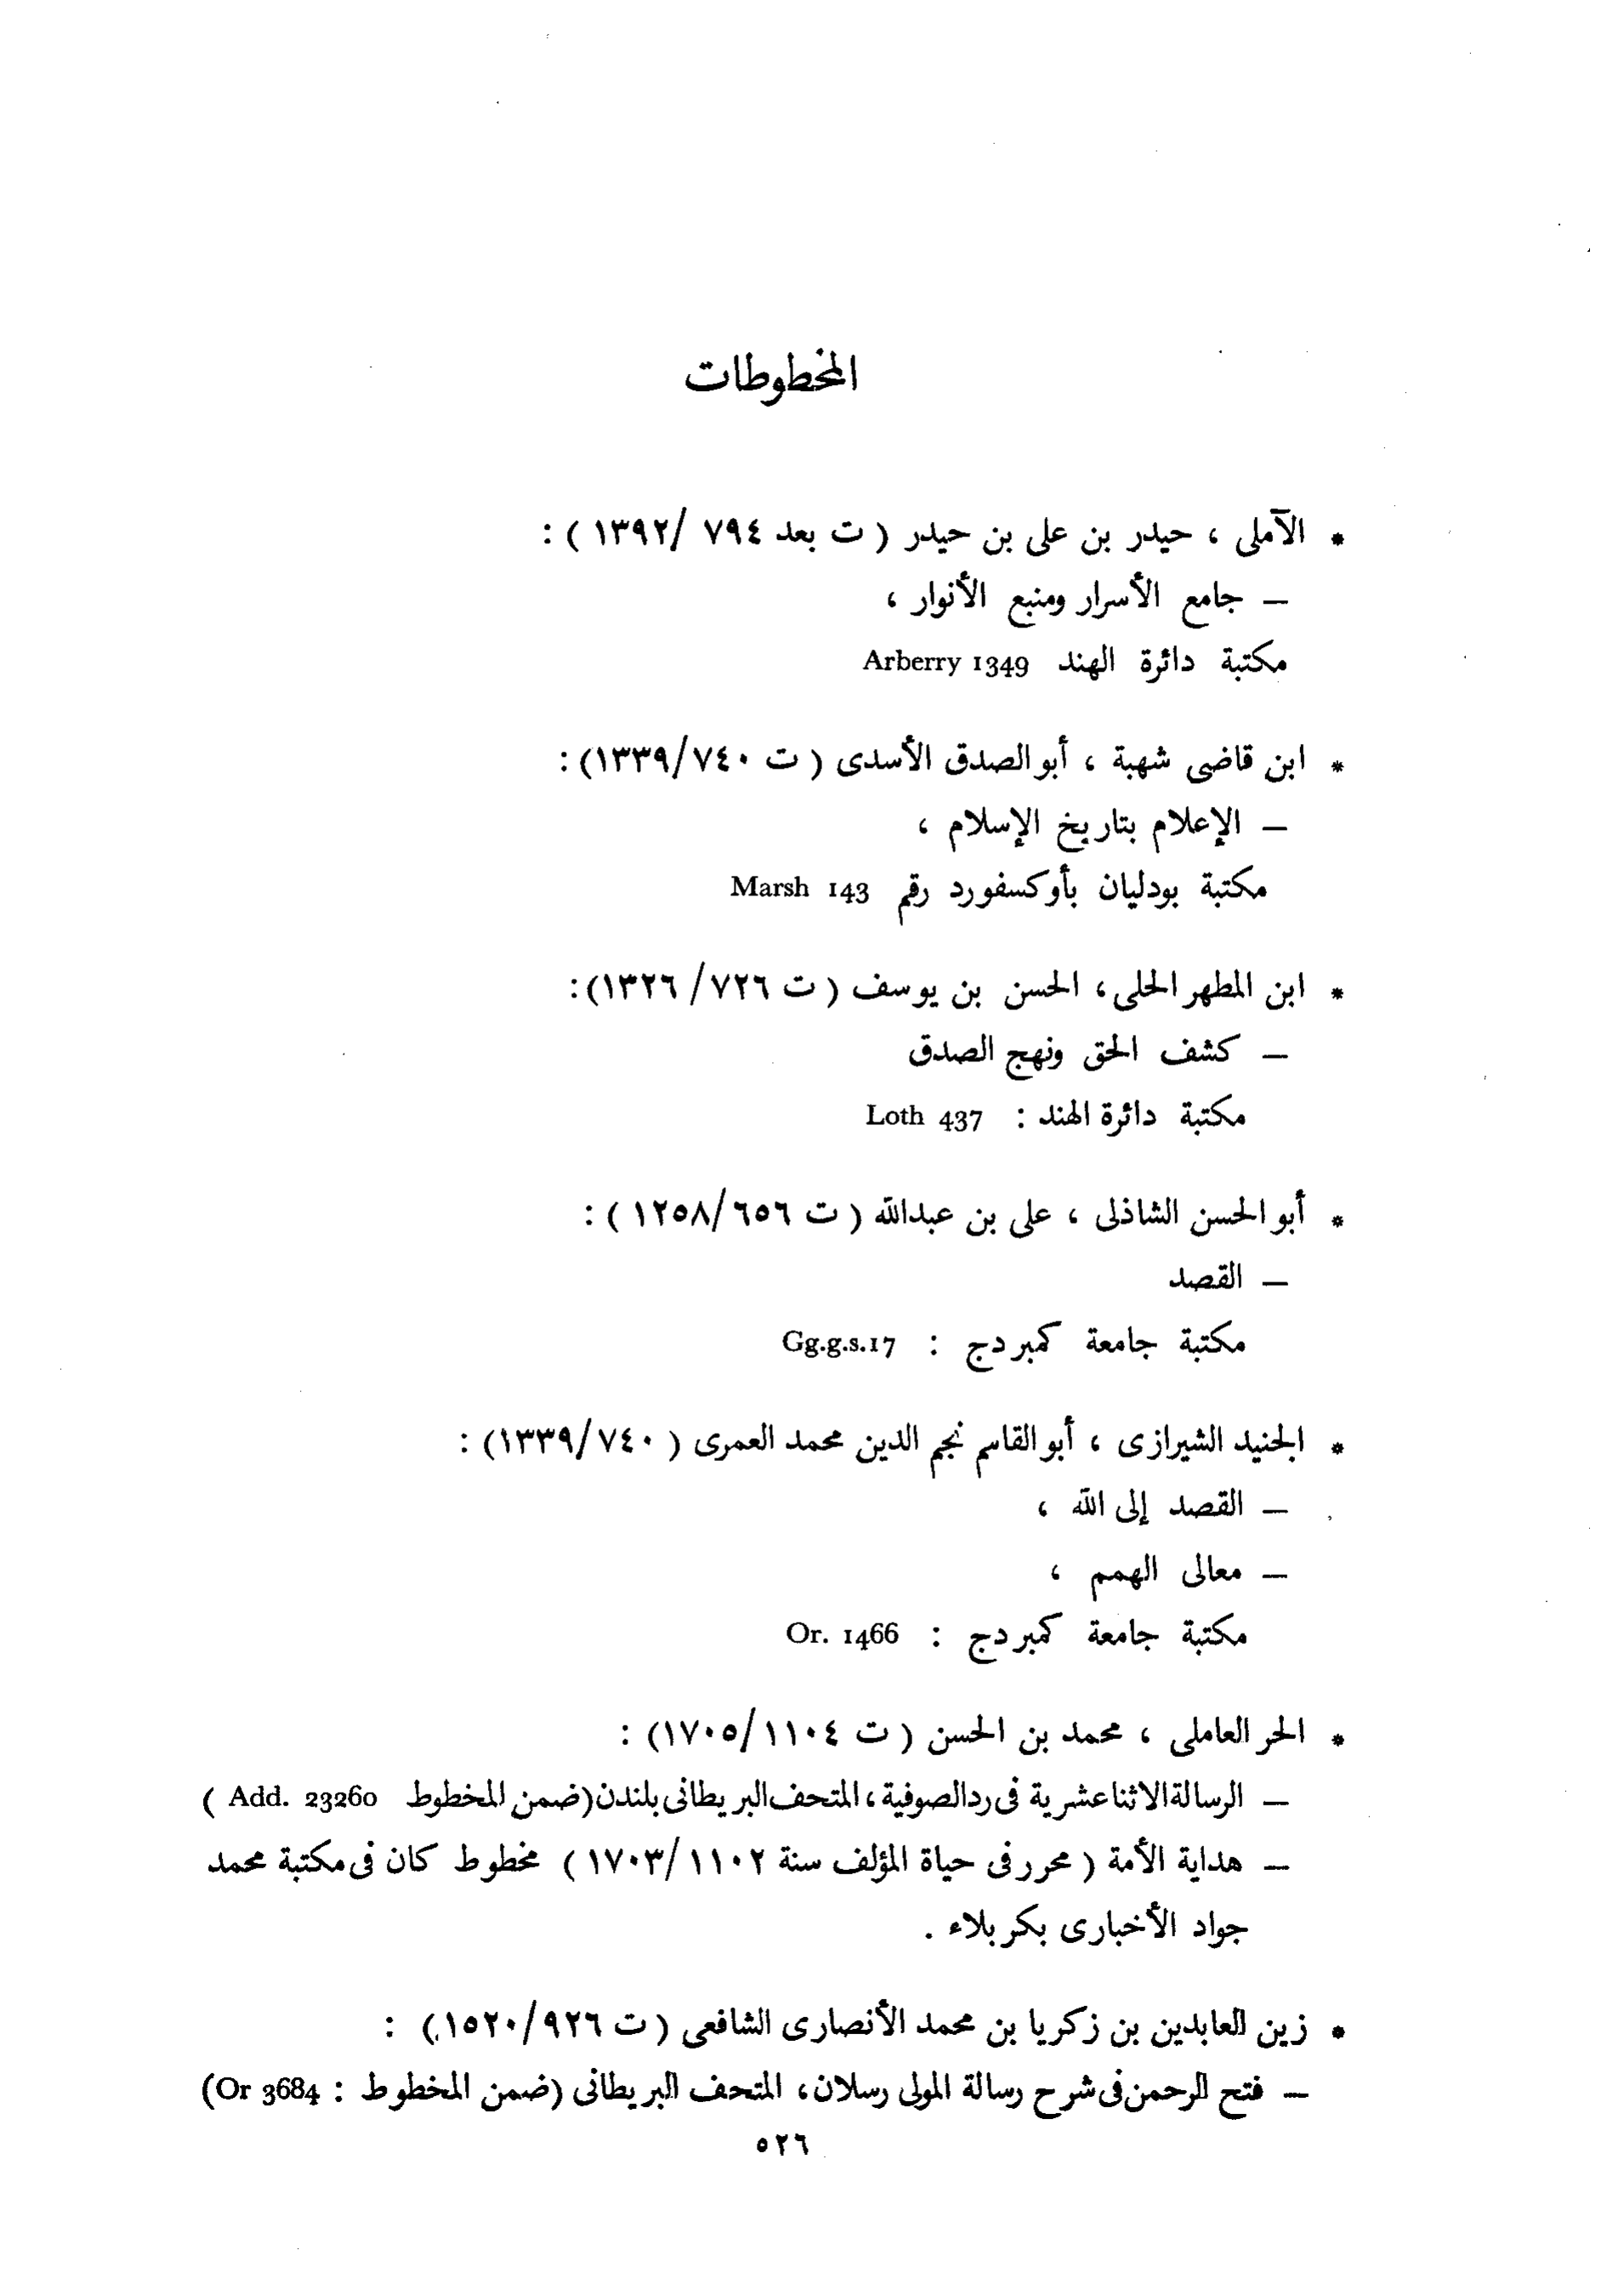 المخطوطات
* الآملى ، حيدر بن على بن حيدر ( ت بعد ٧٩٤ /١٣٩٢ ) :
– جامع الأسرار ومنبع الأنوار ،
مكتبة دائرة الهند Arberry 1349
* ابن قاضى شهبة ، أبو الصدق الأسدى ( ت ٧٤٠/١٣٣٩) :
– الإعلام بتاريخ الإسلام ،
مكتبة بودليان بأوكسفورد رقم Marsh 143
* ابن المطهر الحلى ، الحسن بن يوسف ( ت ٧٢٦/ ١٣٢٦) :
– كشف الحق ونهج الصدق
مكتبة دائرة الهند : Loth 437
* أبو الحسن الشاذلى ، على بن عبدالله ( ت ٦٥٦/١٢٥٨ ) :
– القصد
مكتبة جامعة كمبردج : Gg.g.s.17
* الجنيد الشيرازى ، أبو القاسم نجم الدين محمد العمرى ( ٧٤٠/١٣٣٩) :
– القصد إلى الله ،
– معالى الهمم ،
مكتبة جامعة كمبردج : Or. 1466
* الحر العاملى ، محمد بن الحسن ( ت ١١٠٤/١٧٠٥) :
– الرسالة الاثنا عشرية فى رد الصوفية ، المتحف البريطانى بلندن (ضمن المخطوط Add. 23260 )
– هداية الأمة ( محرر فى حياة المؤلف سنة ١١٠٢/١٧٠٣ ) مخطوط كان فى مكتبة محمد
جواد الأخبارى بكربلاء .
* زين العابدين بن زكريا بن محمد الأنصارى الشافعى ( ت ٩٢٦/١٥٢٠) :
– فتح الرحمن فى شرح رسالة المولى رسلان ، المتحف البريطانى (ضمن المخطوط : Or 3684)
٥٢٦